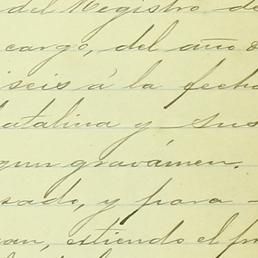 del Registro de
cargo, del año
iseis á la fecha
atalina y sus
gun gravámen.
sado, y para
an, estiendo el